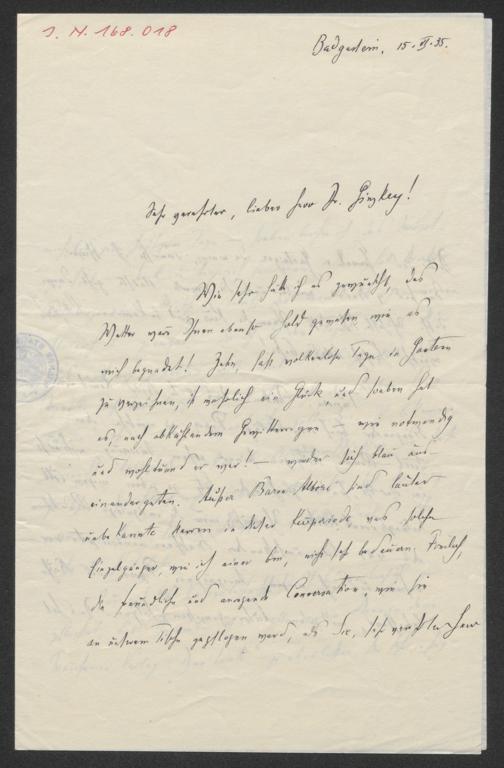 I. N. 168.018
Badgastein, 15. VI. 35.
Sehr verehrter, lieber Herr Dr. Ginzkey!
Wie sehr hätt ich es gewünscht, das
Wetter wäre Ihnen ebenso hold gewesen wie es
mich begnadet! Zehn, fast wolkenlose Tage in Gastein
zu verzeichnen, ist wahrlich ein Glück, und soeben hat
es, nach abkühlendem Gewitterregen – wie notwendig
und wohltuend er war! – wieder sich blau aus-
einandergetan. Außer Baron sind lauter
unbekannte Herren in dieser was solche
Einzelgänger, wie ich einer bin, nicht sehr bedauern. Freilich,
die freundliche und anregende Conversation, wie sie
an unserem Tische gepflogen ward, als Sie, sehr verehrter Herr